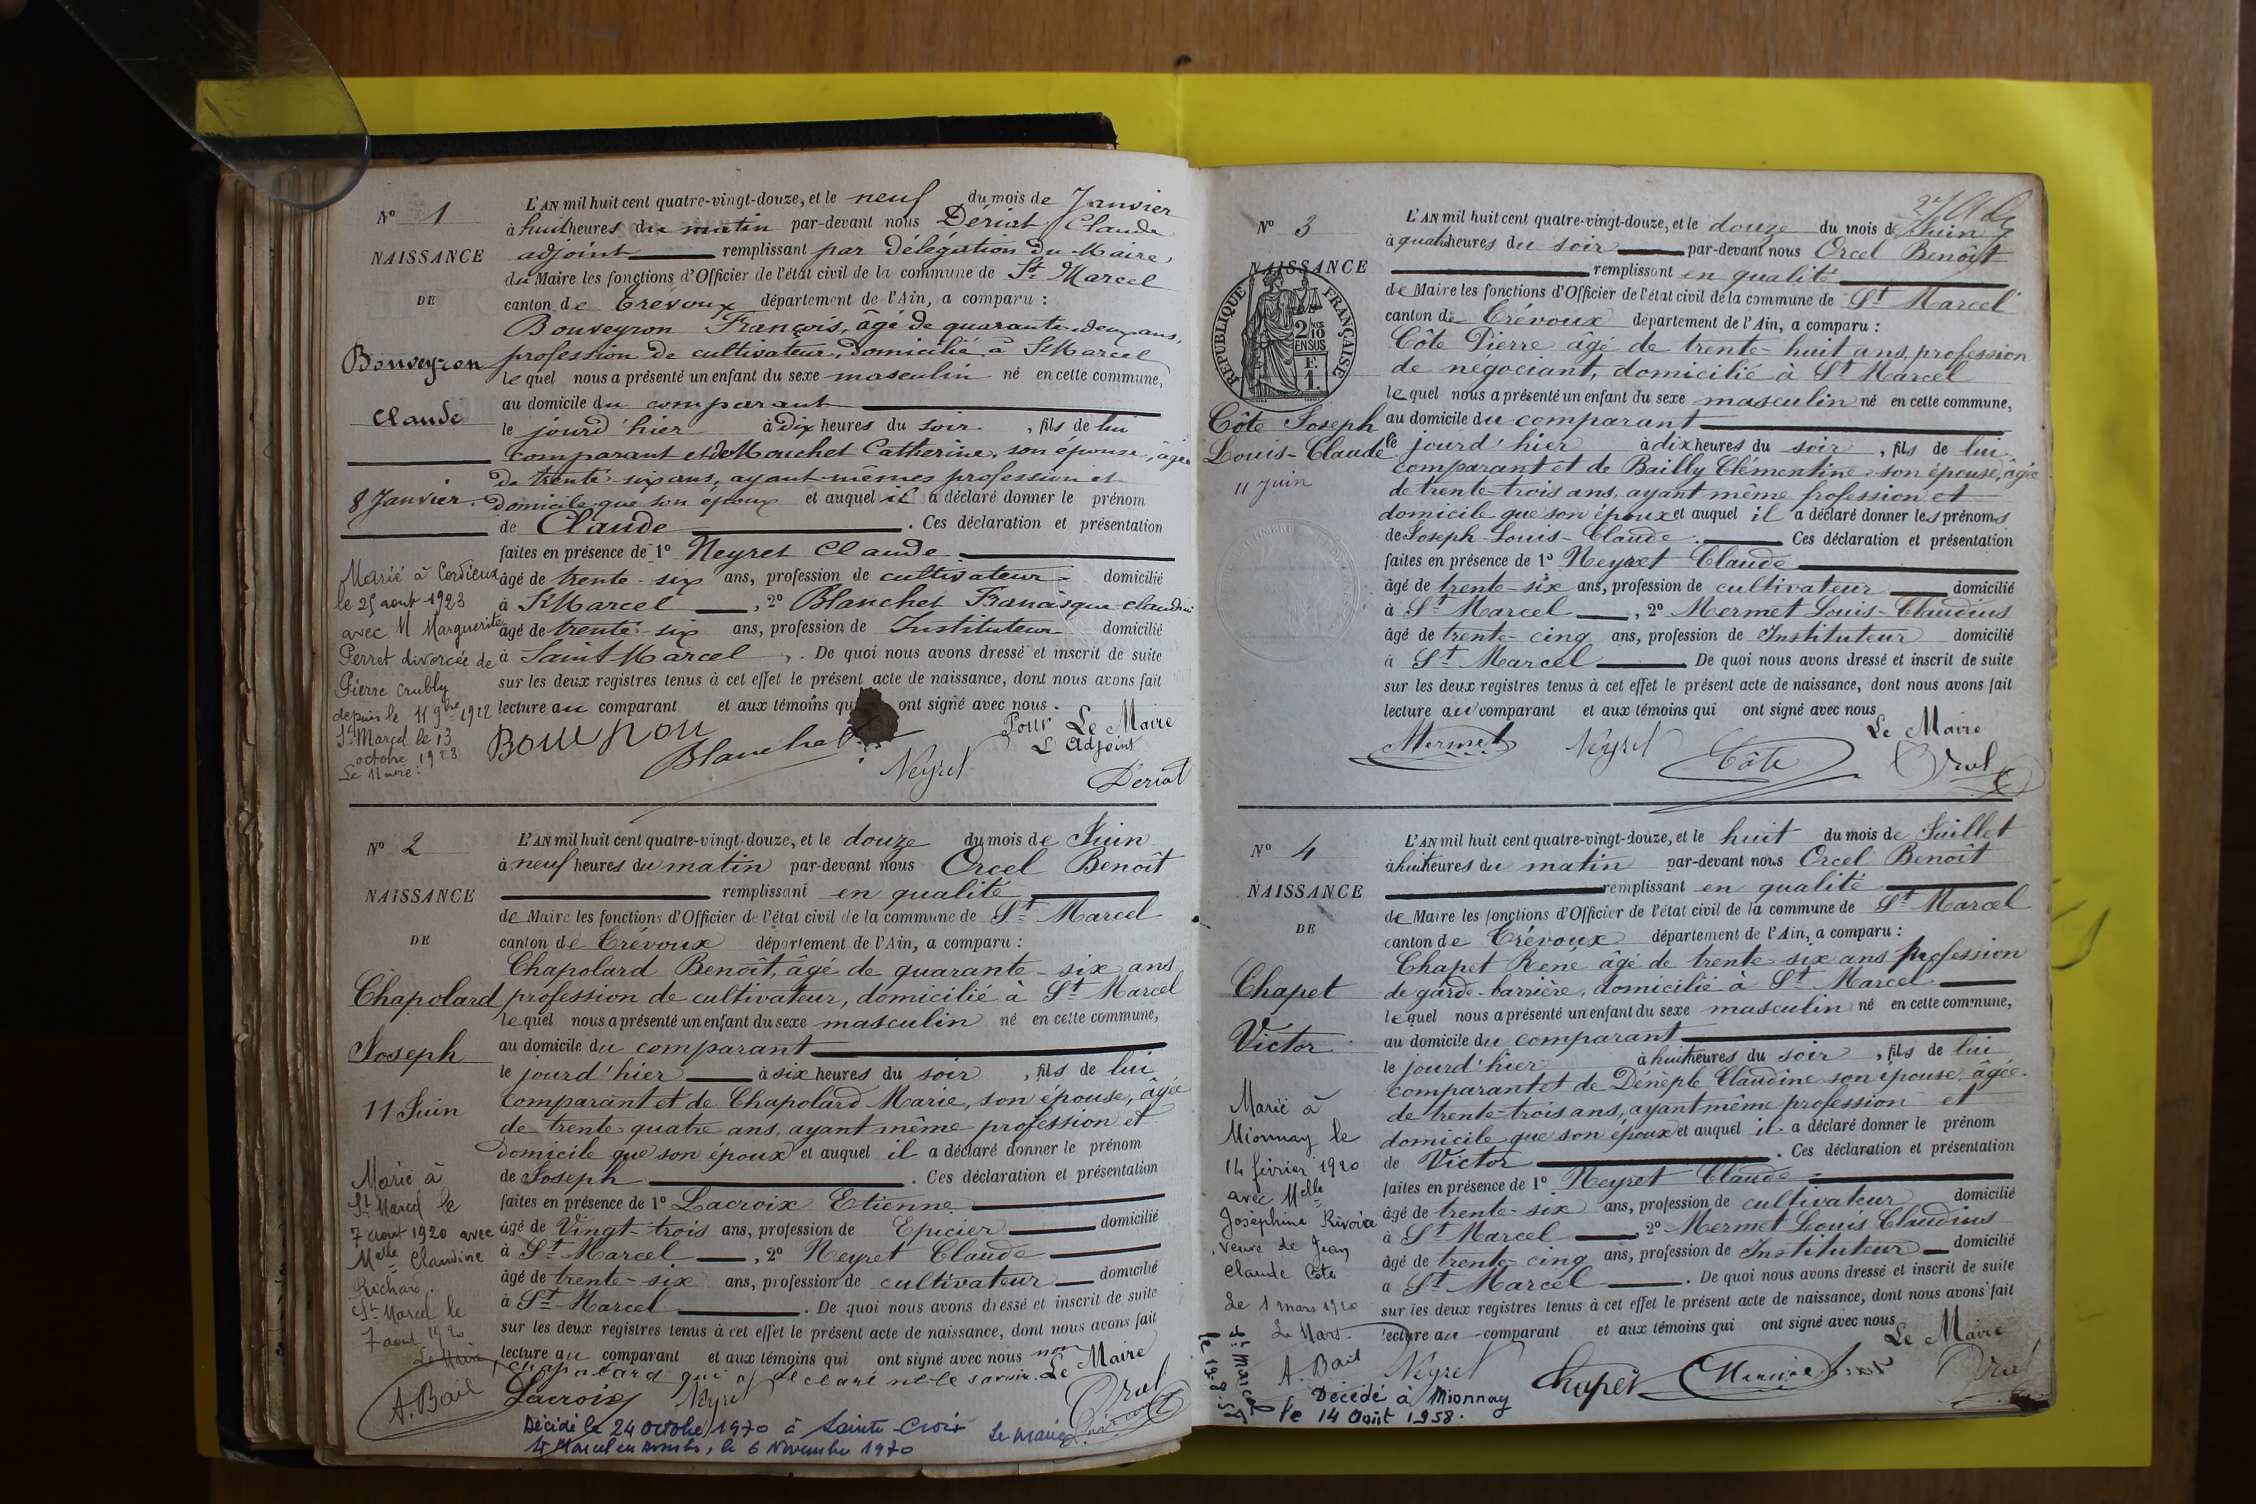 N° 1
NAISSANCE
DE
Bouveyron
Claude
8 Janvier.
Marié à Cordieux
le 25 aout 1923
avec M Marguerite
Perret divorcée de
Pierre Crubly
depuis le 11 9bre 1922
St Marcel le 13
octobre 1923
Le Maire:
L'AN mil huit cent quatre-vingt-douze, et le neuf du mois de Janvier
à huit heures du matin par-devant nous Dériat Claude
adjoint remplissant par délégation du Maire,
du Maire les fonctions d'Officier de l'état civil de la commune de St Marcel
canton de Trévoux département de l'Ain, a comparu :
Bouveyron François, âgé de quarante-deux ans,
profession de cultivateur, domicilié à St Marcel
lequel nous a présenté un enfant du sexe masculin né en cette commune,
au domicile du comparant
le jourd'hier à dix heures du soir, fils de lui
comparant et de Mouchet Catherine, son épouse, âgée
de trente-six ans, ayant mêmes profession et
domicile que son époux et auquel il a déclaré donner le prénom
de Claude. Ces déclaration et présentation
faites en présence de 1° Neyret Claude
âgé de trente-six ans, profession de cultivateur domicilié
à St Marcel, 2° Blanchet Franàsque-claudius
âgé de trente-six ans, profession de Instituteur domicilié
à Saint Marcel,. De quoi nous avons dressé et inscrit de suite
sur les deux registres tenus à cet effet le présent acte de naissance, dont nous avons fait
lecture au comparant et aux témoins qui ont signé avec nous.
Pour Le Maire
L'Adjoint
Blanchet
Neyret
Dériat
N° 2
NAISSANCE
DE
Chapolard
Joseph
11 Juin
Marié à
St Marcel le
7 aout 1920 avec
Melle Claudine
Richard.
St Marcel le
7 aout 1920
Le Maire
A. Bail
L'AN mil huit cent quatre-vingt-douze, et le douze du mois de Juin
à neuf heures du matin par-devant nous Orcel Benoît
remplissant en qualité
de Maire les fonctions d'Officier de l'état civil de la commune de St Marcel
canton de Trévoux département de l'Ain, a comparu :
Chapolard Benoît, âgé de quarante-six ans
profession de cultivateur, domicilié à St Marcel
lequel nous a présenté un enfant du sexe masculin né en cette commune,
au domicile du comparant
le jourd'hier à six heures du soir, fils de lui
comparant et de Chapolard Marie, son épouse, âgée
de trente quatre ans, ayant même profession et
domicile que son époux et auquel il a déclaré donner le prénom
de Joseph. Ces déclaration et présentation
faites en présence de 1° Lacroix Etienne
âgé de Vingt-trois ans, profession de Epicier domicilié
à St Marcel, 2° Neyret Claude
âgé de trente-six ans, profession de cultivateur domicilié
à St Marcel. De quoi nous avons dressé et inscrit de suite
sur les deux registres tenus à cet effet le présent acte de naissance, dont nous avons fait
lecture au comparant et aux témoins qui ont signé avec nous non
Chapolard qui a déclaré ne le savoir. Le Maire
Lacroix Neyret Orcel
Décédé le 24 octobre 1970 à Sainte-Croix
St Marcel en Dombes, le 6 Novembre 1970
Le Maire
N° 3
NAISSANCE
RÉPUBLIQUE FRANÇAISE
2/10 EN SUS
F. 1.
Côte Joseph
Louis-Claude
11 Juin
L'AN mil huit cent quatre-vingt-douze, et le douze du mois de Juin
à quatre heures du soir par-devant nous Orcel Benoît
remplissant en qualité
de Maire les fonctions d'Officier de l'état civil de la commune de St Marcel
canton de Trévoux département de l'Ain, a comparu :
Côte Pierre âgé de trente-huit ans, profession
de négociant, domicilié à St Marcel
lequel nous a présenté un enfant du sexe masculin né en cette commune,
au domicile du comparant
le jourd'hier à dix heures du soir, fils de lui
comparant et de Bailly Clémentine son épouse, âgée
de trente-trois ans, ayant même profession et
domicile que son époux et auquel il a déclaré donner les prénoms
de Joseph-Louis-Claude. Ces déclaration et présentation
faites en présence de 1° Neyret Claude
âgé de trente-six ans, profession de cultivateur domicilié
à St Marcel, 2° Mermet Louis-Claudius
âgé de trente-cinq ans, profession de Instituteur domicilié
à St Marcel. De quoi nous avons dressé et inscrit de suite
sur les deux registres tenus à cet effet le présent acte de naissance, dont nous avons fait
lecture au comparant et aux témoins qui ont signé avec nous
Le Maire
Mermet Neyret Côte Orcel
N° 4
NAISSANCE
DE
Chapet
Victor
Marié à
Mionnay le
14 février 1920
avec Melle
Joséphine Rivoire
veuve de Jean
Claude Côte
Le 1 mars 1920
Le Mars.
A. Bail
St Marcel
le 19.8.58
L'AN mil huit cent quatre-vingt-douze, et le huit du mois de Juillet
à huit heures du matin par-devant nous Orcel Benoît
remplissant en qualité
de Maire les fonctions d'Officier de l'état civil de la commune de St Marcel
canton de Trévoux département de l'Ain, a comparu :
Chapet René âgé de trente-six ans profession
de garde-barrière, domicilié à St Marcel
lequel nous a présenté un enfant du sexe masculin né en cette commune,
au domicile du comparant
le jourd'hier à huit heures du soir, fils de lui
comparant et de Dénèple Claudine son épouse, âgée
de trente-trois ans, ayant même profession et
domicile que son époux et auquel il a déclaré donner le prénom
de Victor. Ces déclaration et présentation
faites en présence de 1° Neyret Claude
âgé de trente-six ans, profession de cultivateur domicilié
à St Marcel, 2° Mermet Louis Claudius
âgé de trente-cinq ans, profession de Instituteur domicilié
à St Marcel. De quoi nous avons dressé et inscrit de suite
sur les deux registres tenus à cet effet le présent acte de naissance, dont nous avons fait
lecture au comparant et aux témoins qui ont signé avec nous
Le Maire
Neyret Chapet Orcel
Décédé à Mionnay
le 14 Août 1958.